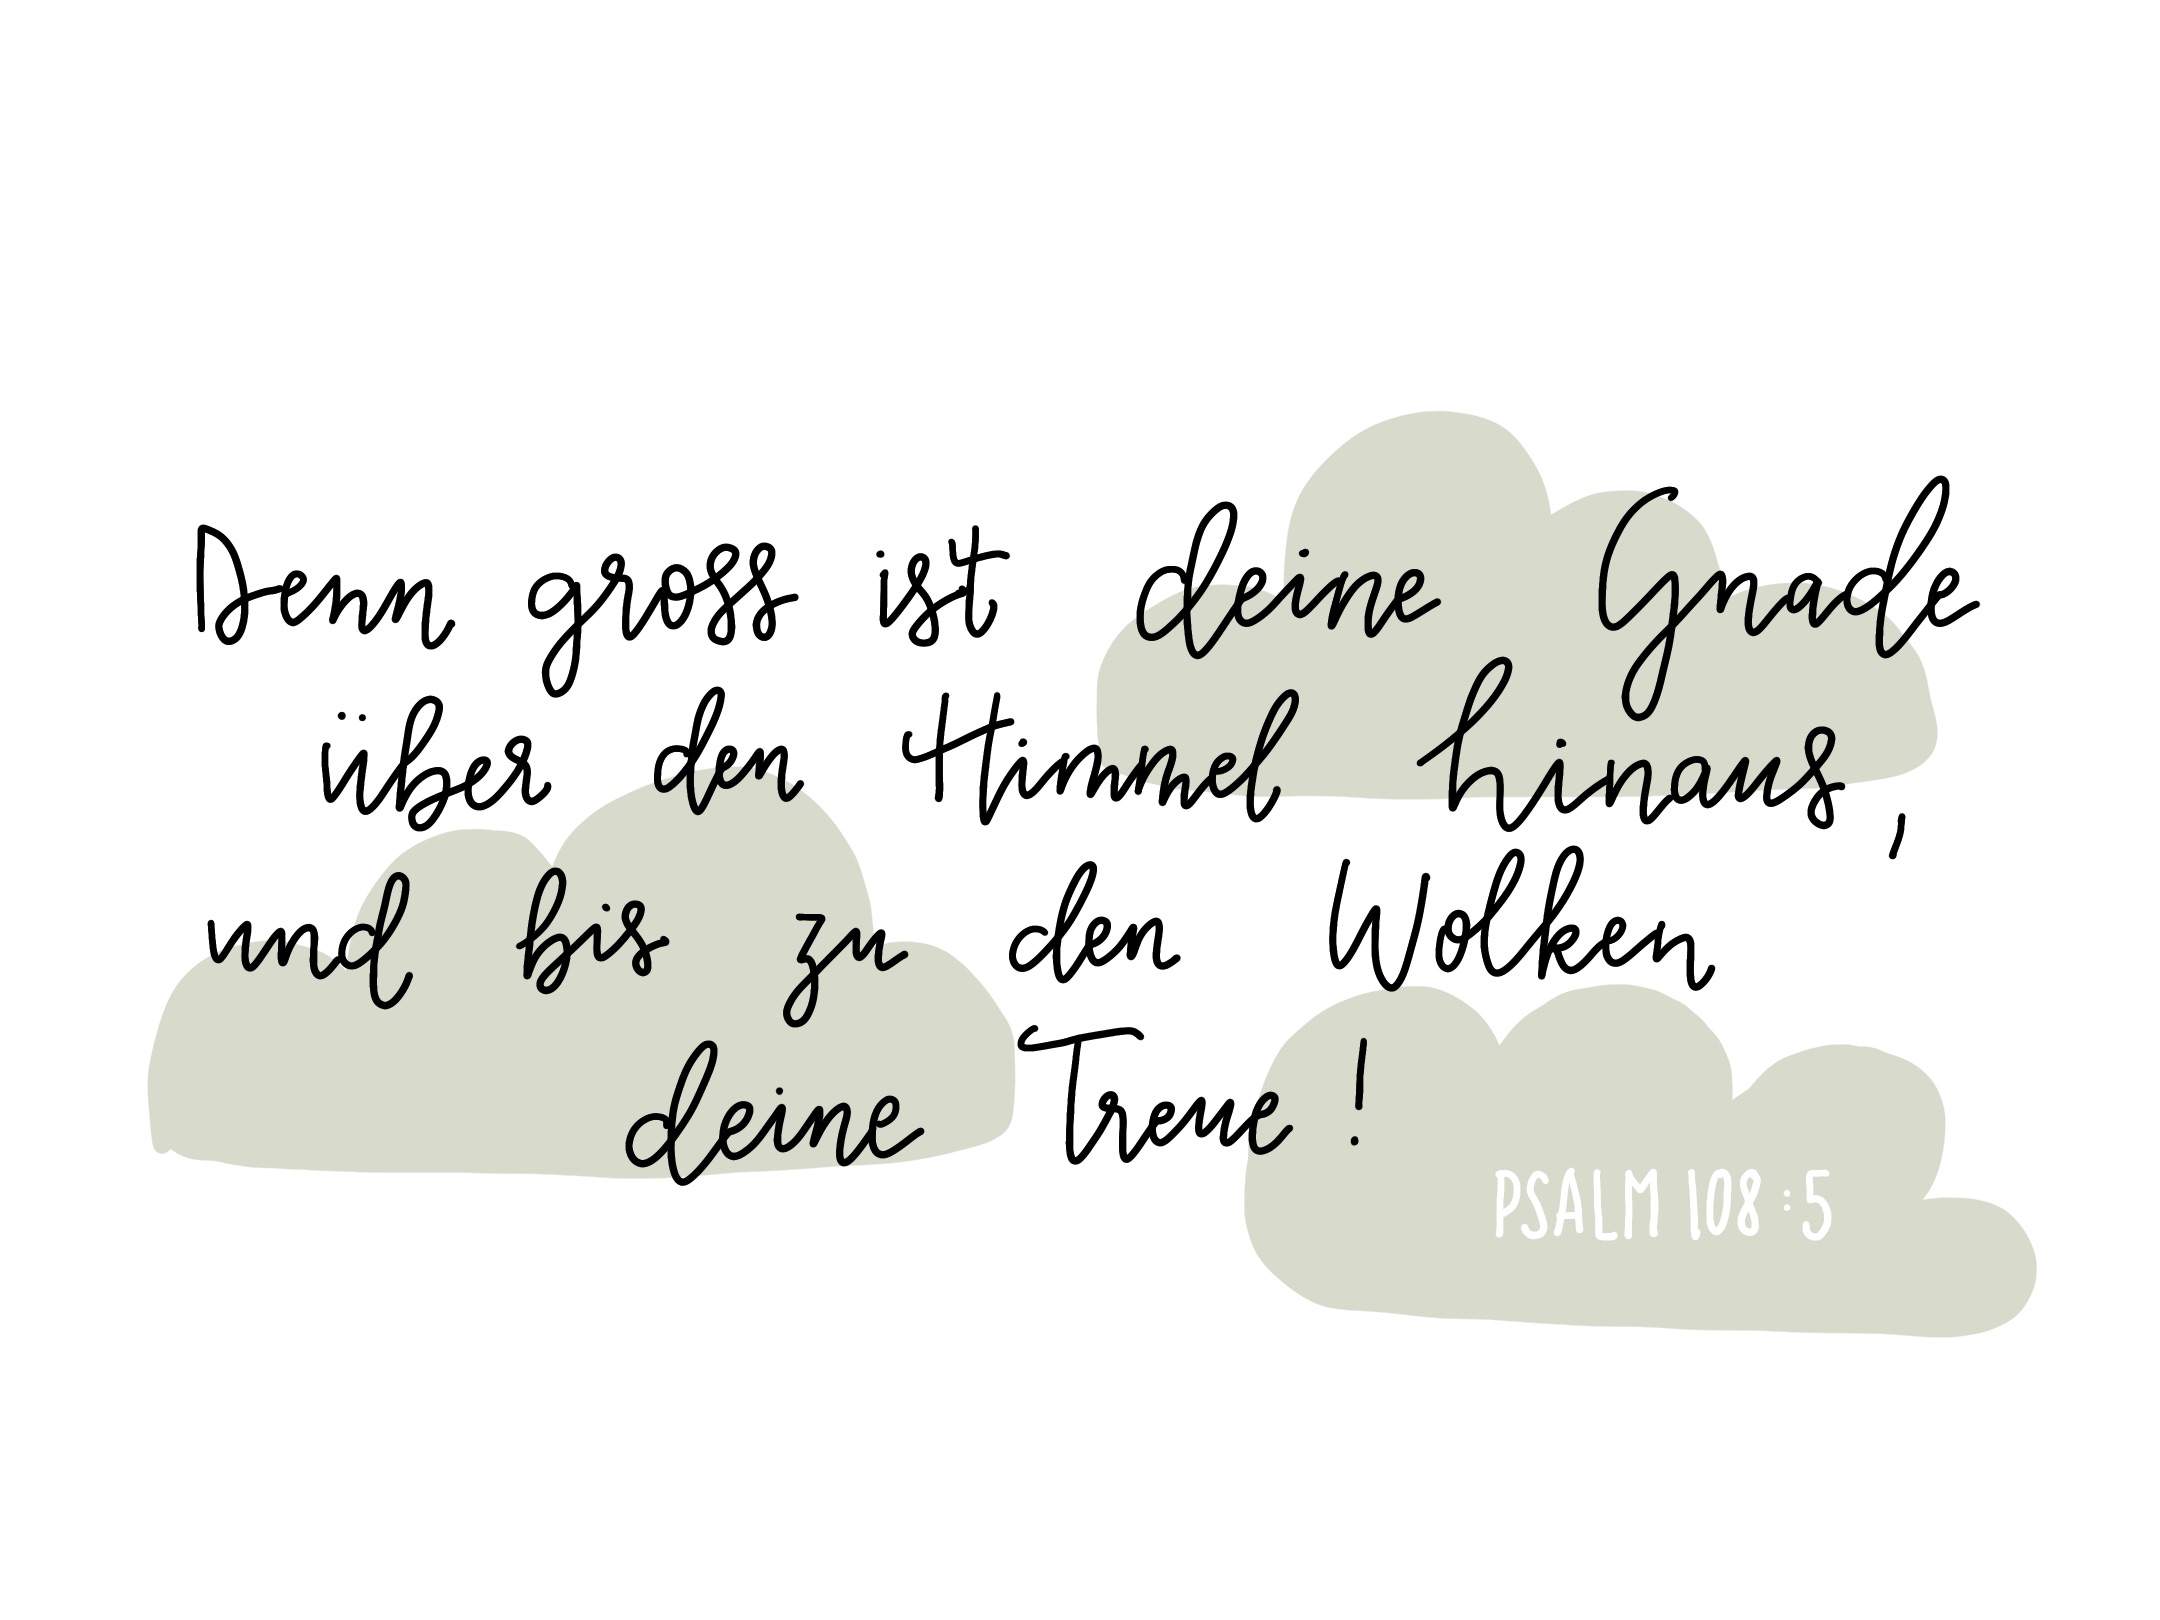 Denn gross ist deine Gnade
über den Himmel hinaus,
und bis zu den Wolken
deine Treue!
PSALM 108:5